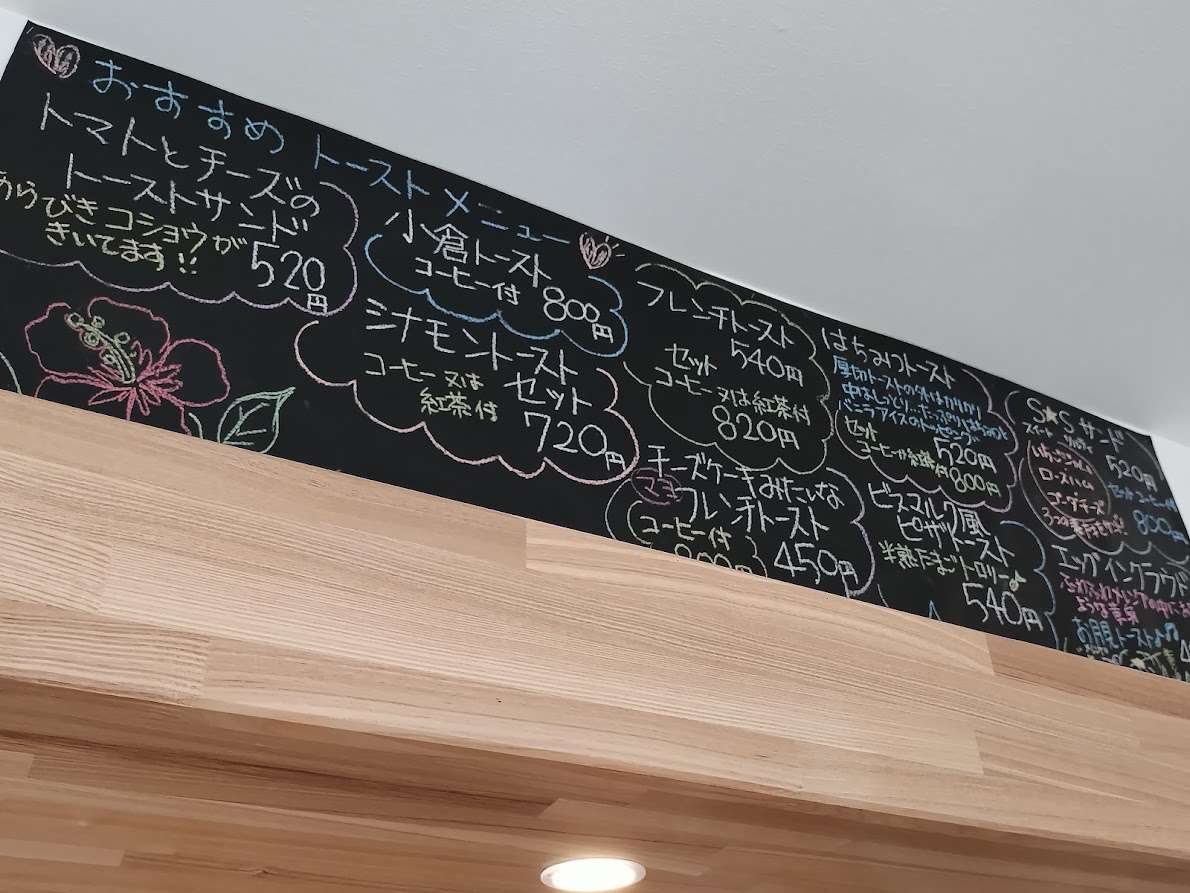 おすすめ トーストメニュー
トマトとチーズの
トーストサンド
あらびきコショウが
きいてます!!
520円
小倉トースト
コーヒー付 800円
シナモントースト
セット
コーヒー又は
紅茶付
720円
フレンチトースト
540円
セット
コーヒー又は紅茶付
820円
チーズケーキみたいな
マヨ
フレンチトースト
コーヒー付
800円
450円
はちみつトースト
厚切トーストの外はカリカリ
中はしっとり たっぷりはちみつと
バニラアイスのトッピング
520円
セット
コーヒーか紅茶付 800円
ビスマルク風
ピザトースト
半熟たまごトロリー♪
540円
S★Sサンド
スイート
520円
いちごジャム
ロースハム
ゴーダチーズ
セットコーヒー付
800円
エッグイングラウド
お月見トースト♪